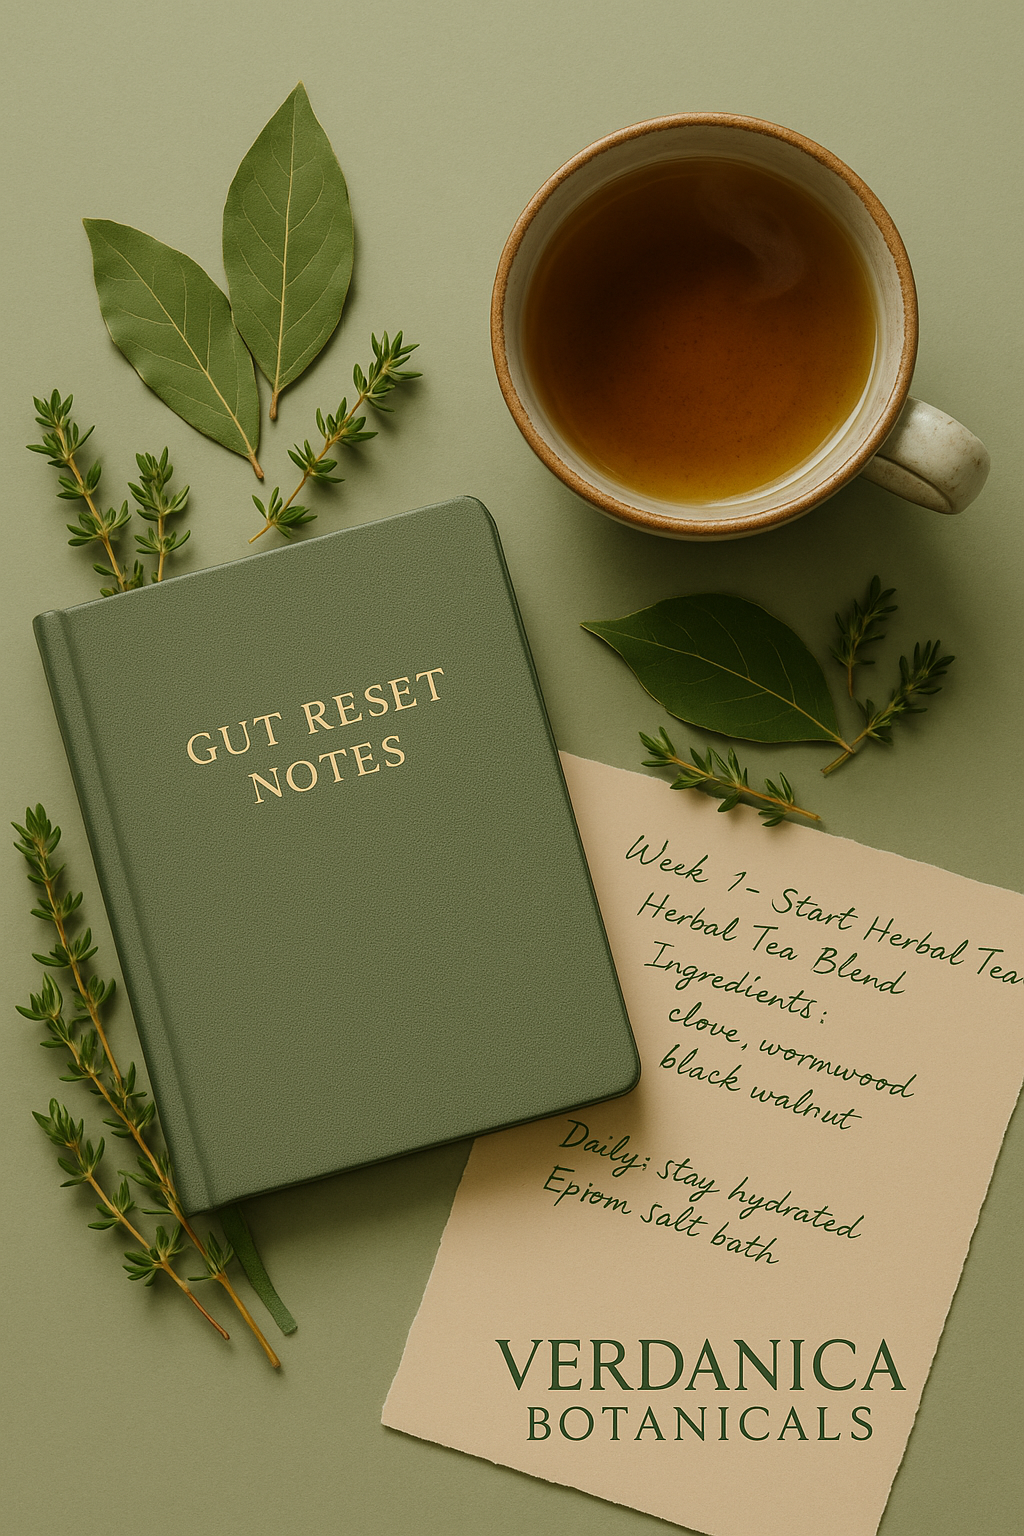 GUT RESET
NOTES
Week 1- Start Herbal Tea
Herbal Tea Blend
Ingredients:
clove, wormwood
black walnut
Daily: stay hydrated
Epiom salt bath
VERDANICA
BOTANICALS